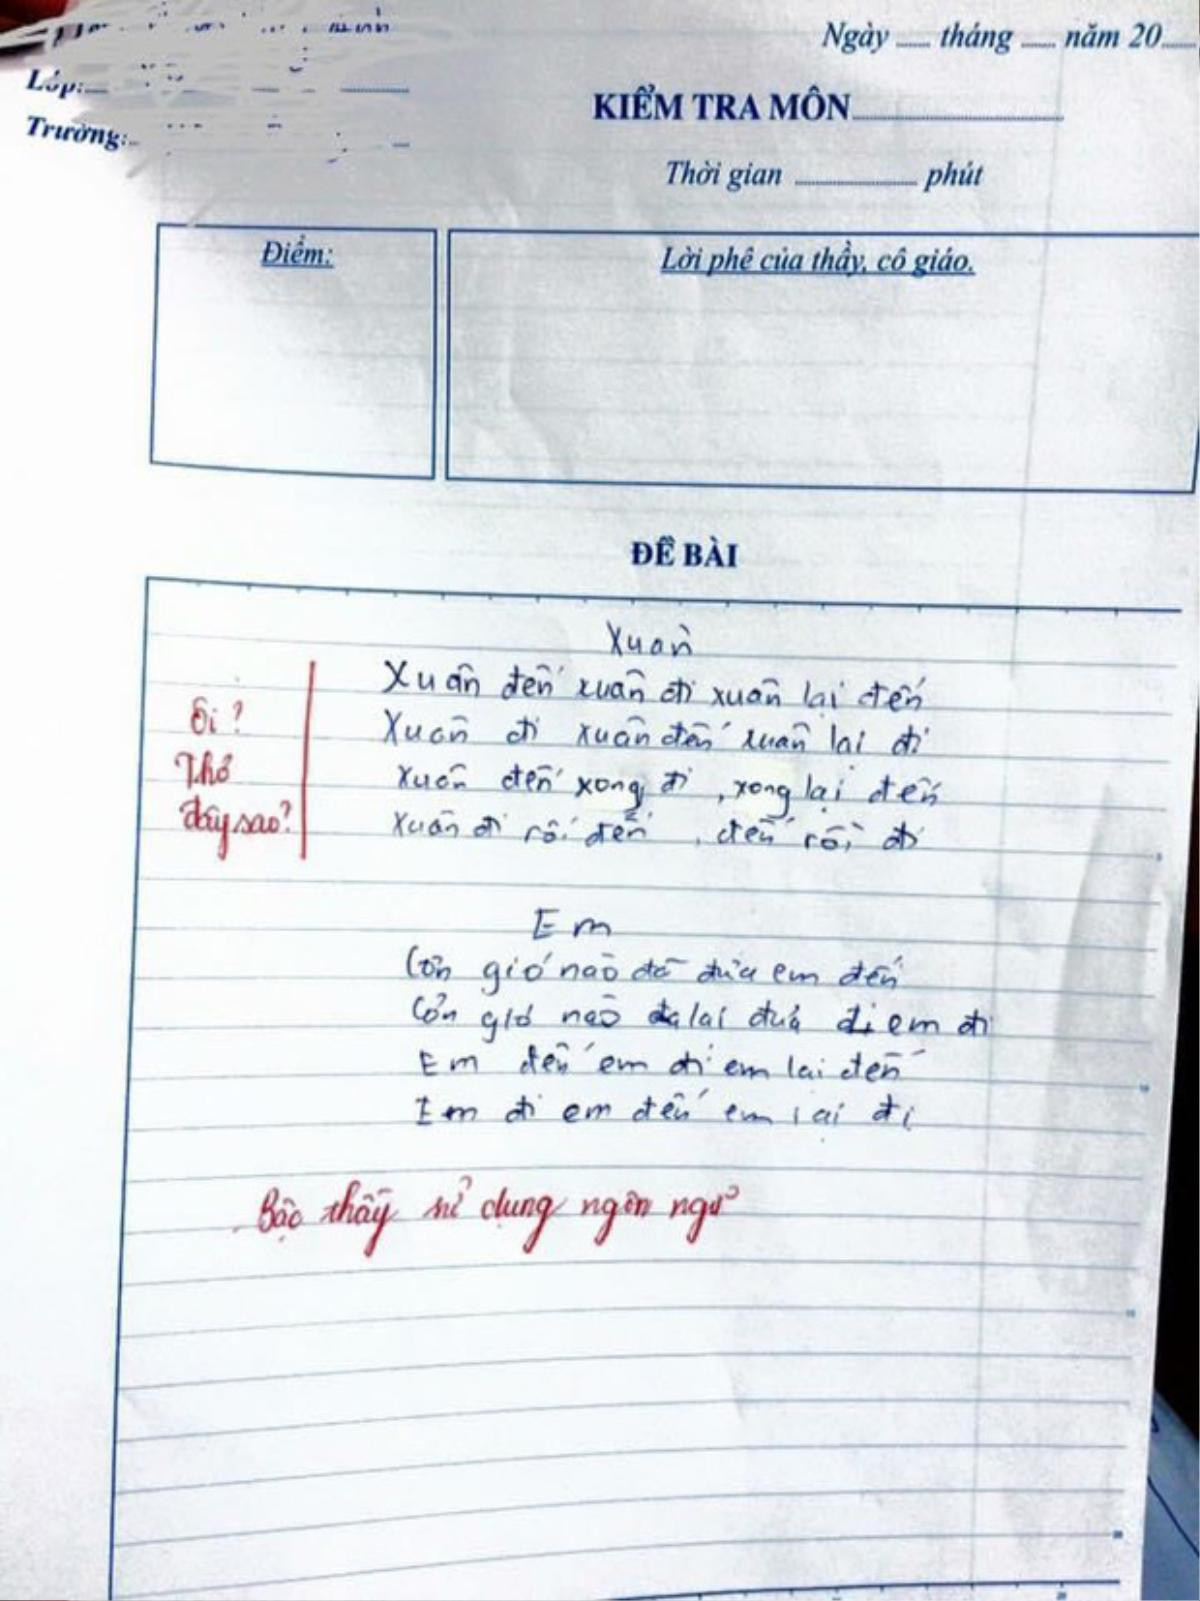 Lớp:
Trường:
Ngày ..... tháng ..... năm 20.....
KIỂM TRA MÔN
Thời gian ............ phút
Điểm:
Lời phê của thầy, cô giáo.
ĐỀ BÀI
Xuân
Xuân đến xuân đi xuân lại đến
Xuân đi xuân đến xuân lại đi
Xuân đến xong đi, xong lại đến
Xuân đi rồi đến, đến rồi đi
Ôi?
Thơ
đây sao?
Em
Cơn gió nào đã đưa em đến
Cơn gió nào lại đưa đi em đi
Em đến em đi em lại đến
Em đi em đến em lại đi
Bậc thầy sử dụng ngôn ngữ